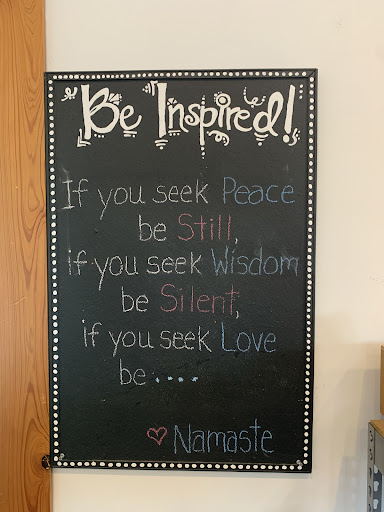 Be Inspired!
If you seek Peace
be Still,
if you seek Wisdom
be Silent,
if you seek Love
be ....
Namaste